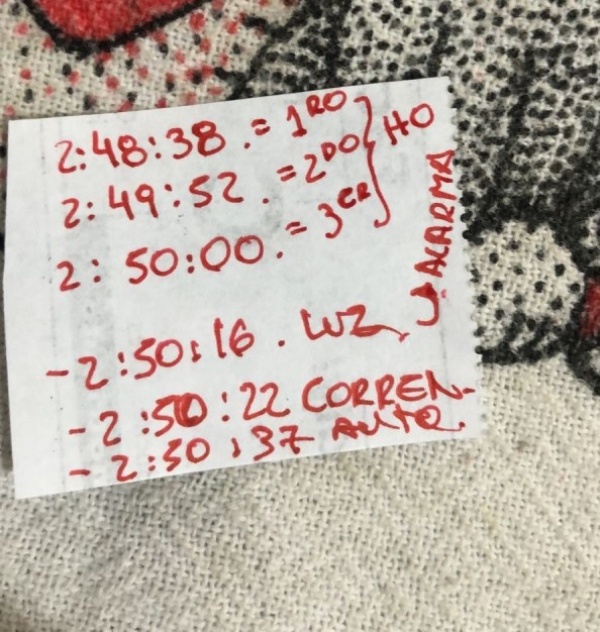 2:48:38 .= 1RO
2:49:52 .=2DO
2: 50:00.= 3ER
HO
-2:50:16 . LUZ
ALARMA
-2:50:22 CORREN-
-2:50:37 AUTO.